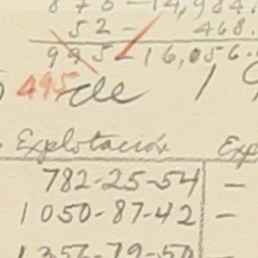 870-14,984.
52- 468.
995-16,056.
495 de 19
Explotación Exp
782-25-54 -
1050-87-42 -
1356-79-50